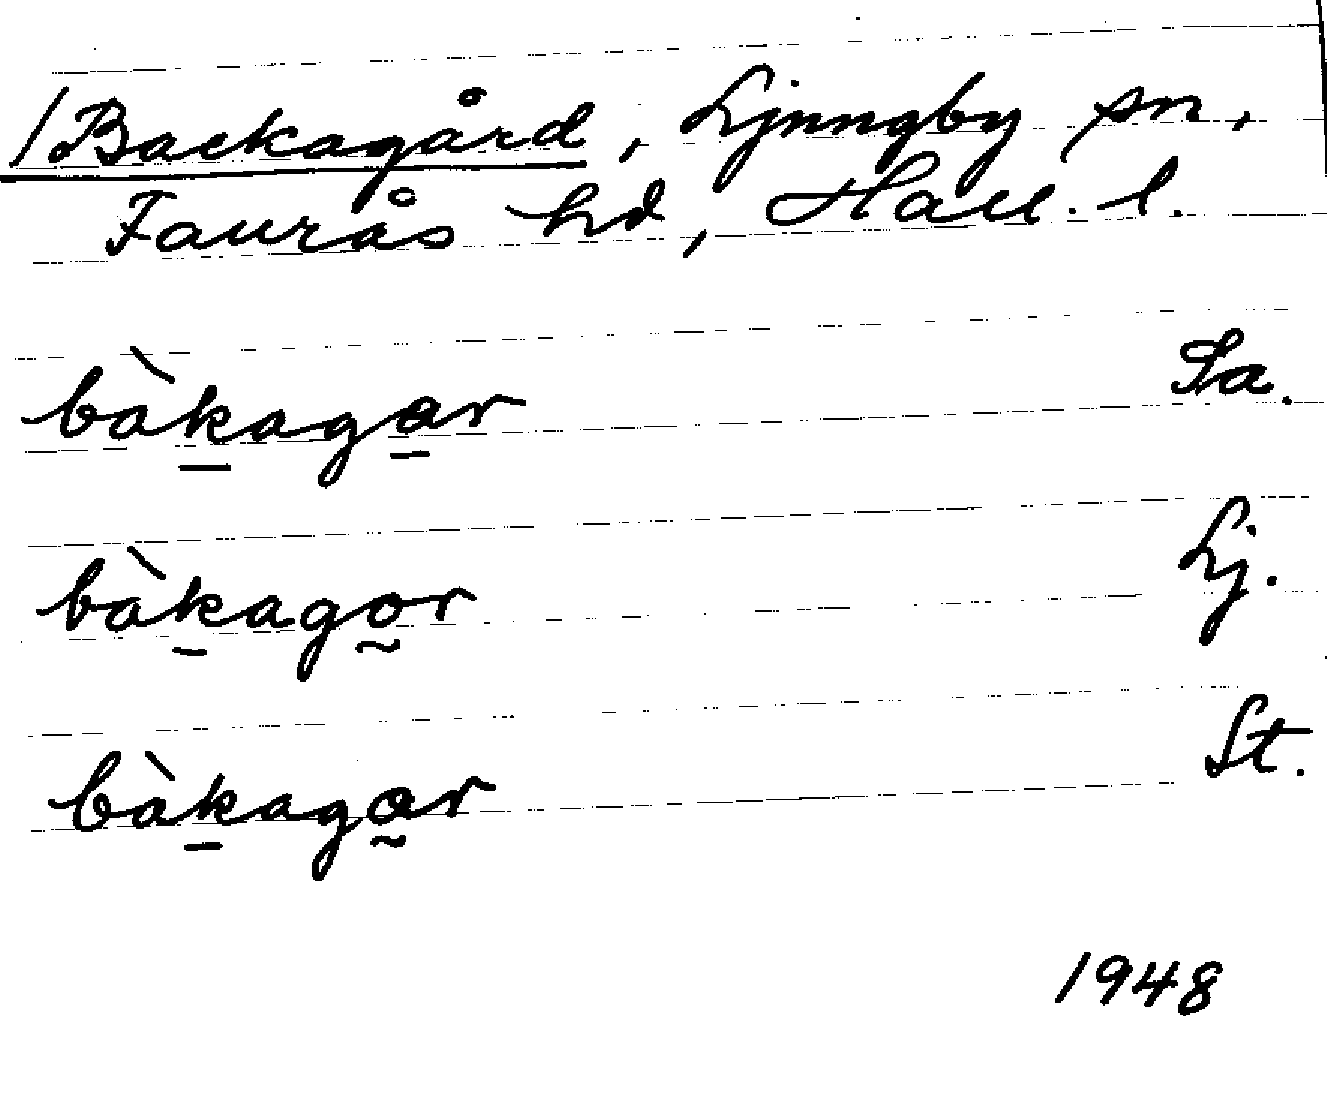 /Backagård, Ljungby sn,
Faurås hd, Hall. l.
bàk̲aga̲r Sa.
bàk̲ago̰r Lj.
bàk̲aga̰r St.
1948